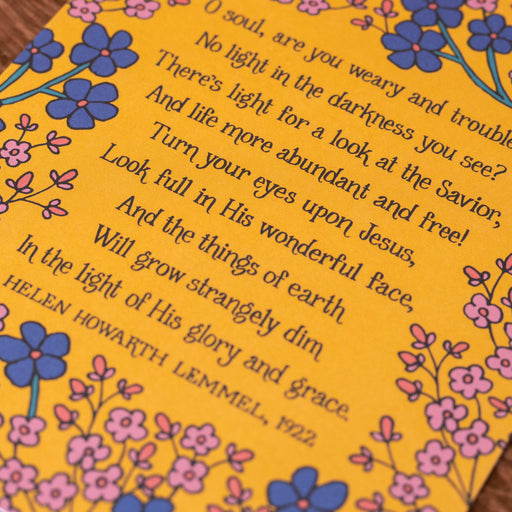 O soul, are you weary and trouble
No light in the darkness you see?
There's light for a look at the Savior,
And life more abundant and free!
Turn your eyes upon Jesus,
Look full in His wonderful face,
And the things of earth
Will grow strangely dim
In the light of His glory and grace.
HELEN HOWARTH LEMMEL, 1922